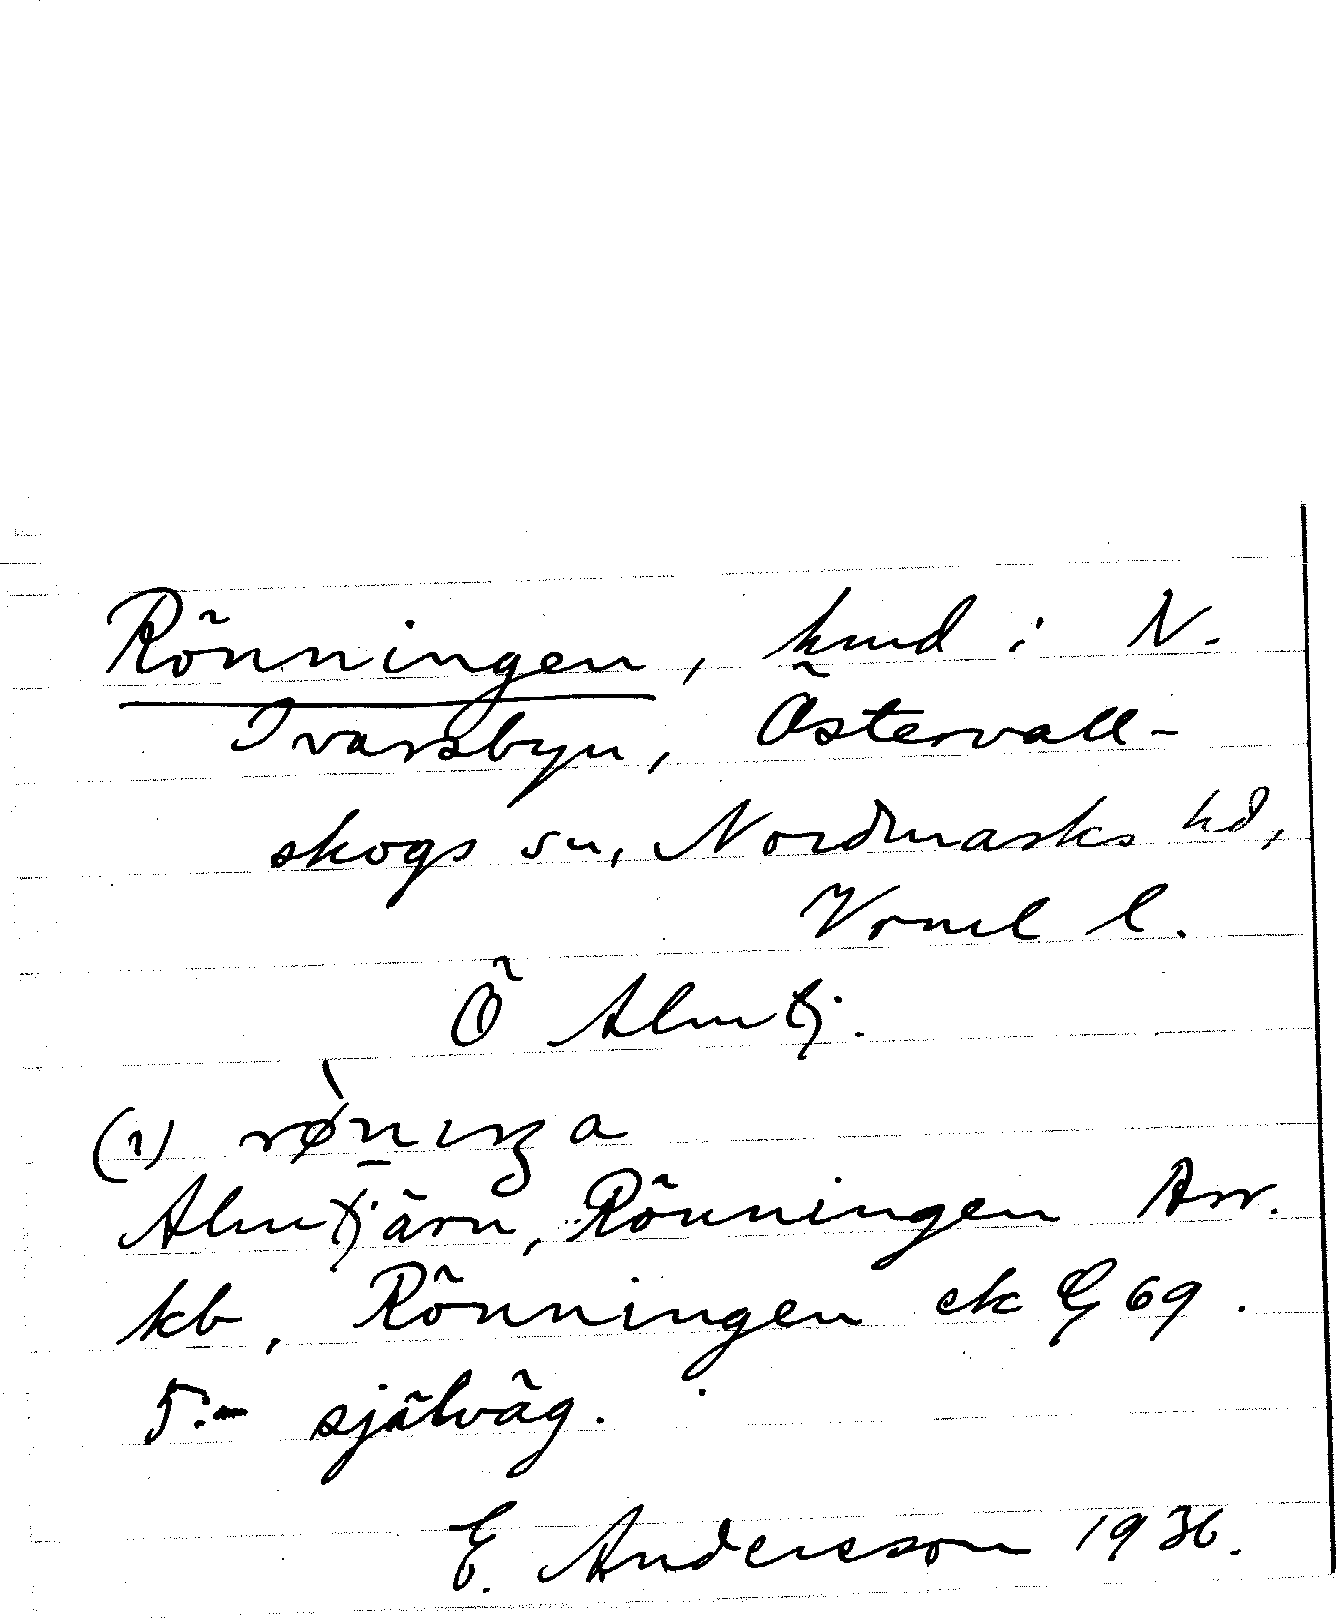 Rönningen, hmd i N.
Ivarsbyn, Östervall-
skogs sn, Nordmarks hd,
Vrml l.
Ö Almtj.
(1) rø̀nıŋa
Almtjärn, Rönningen Arr.
kb, Rönningen ek G 69.
5:- själväg.
E. Andersson 1936.